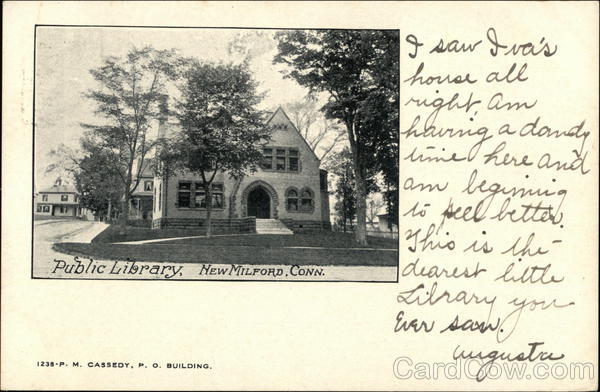 I saw Iva's
house all
right. Am
having a dandy
time here and
am beginning
to feel better.
This is the
dearest little
Library you
Ever saw.
Augusta
Public Library, New Milford, Conn.
1238-P. M. CASSEDY, P. O. BUILDING.
CardCow.com